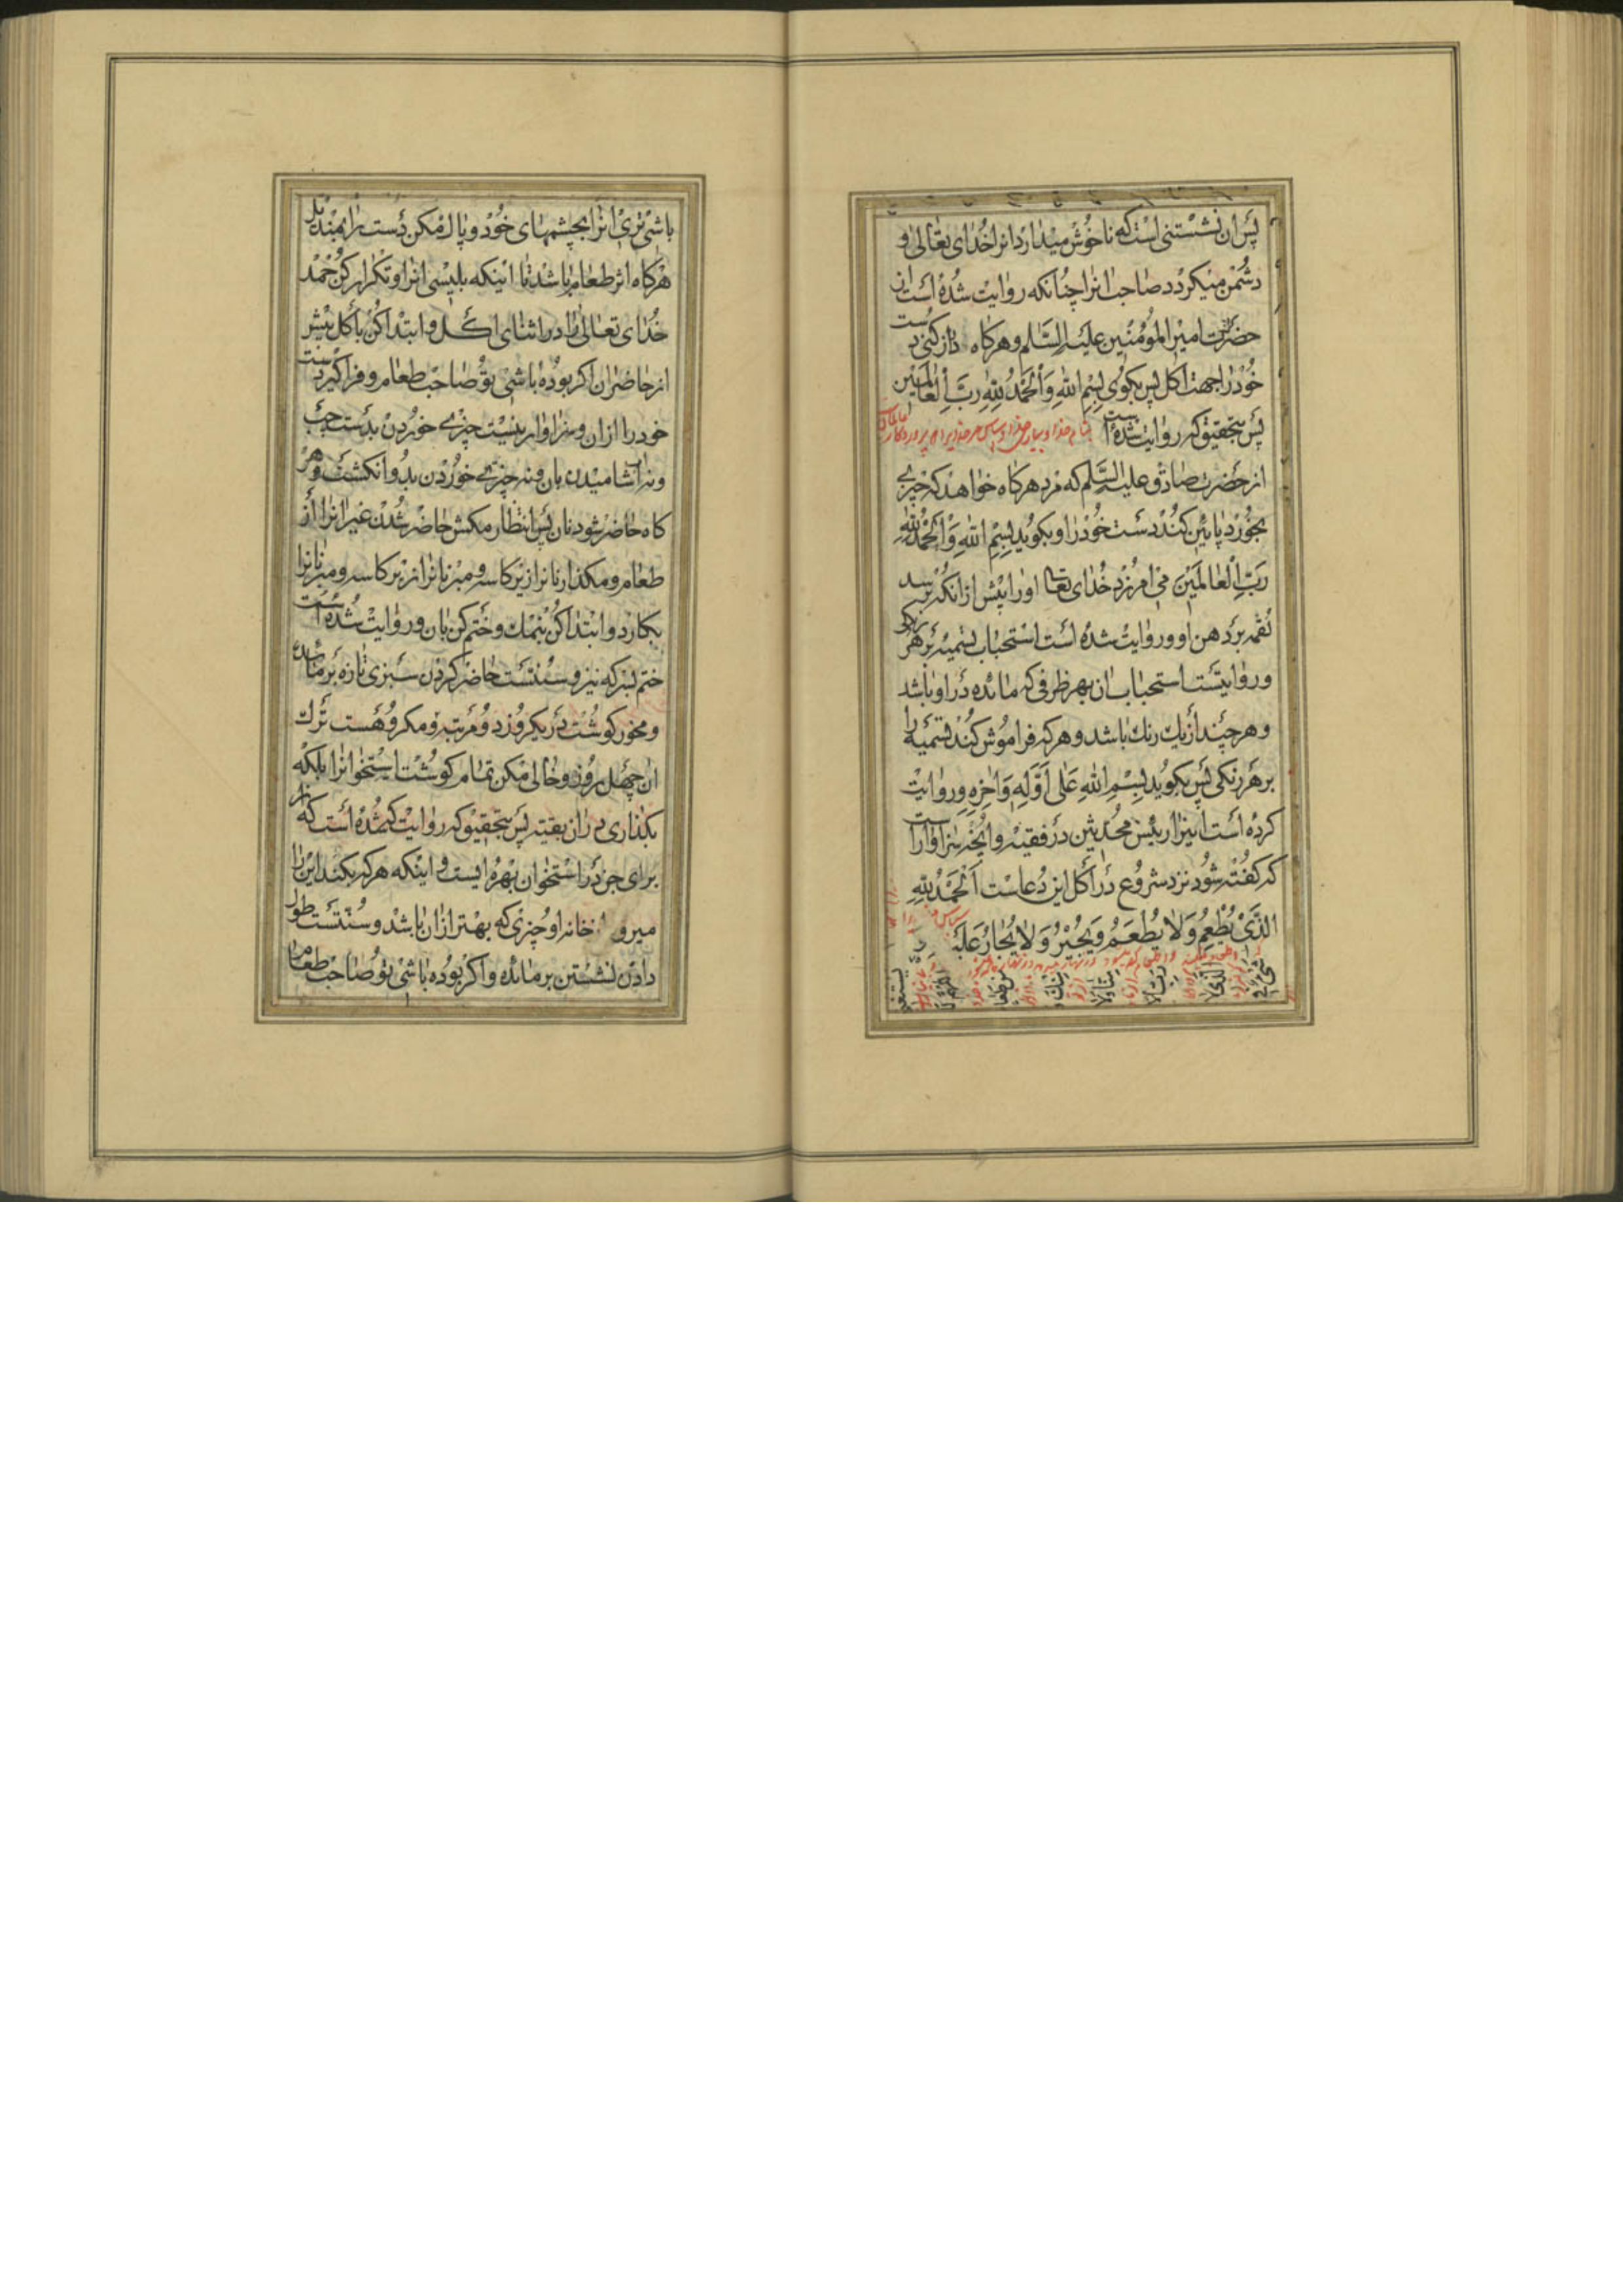 پس ان نشستنی است که ناخوش میدارد انرا خدای تعالی و
دشمن میکردد صاحب انرا چنانکه روایت شده است از
حضرت امیر المؤمنین علیه السلم و هرکاه دراز کنی دست
خود را جهت اکل پس بکوی بسم الله و الحمد لله رب العالمین
پس بتحقیق که روایت شده است
از حضرت صادق علیه السلم که مرد هرکاه خواهد که چیزی
بخورد پایین کند دست خود را و بکوید بسم الله و الحمد لله
رب العالمین می امرزد خدای تعالی او را پیش از انکه برسد
لقمه بر دهن او و روایت شده است استحباب تسمیه بر هر رنکی
و روایتست استحباب ان بهر ظرفی که مائده در او باشد
و هرچند از یک رنک باشد و هرکه فراموش کند تسمیه را
بر هر رنکی پس بکوید بسم الله علی اوله و اخره و روایت
کرده است اینرا رئیس محدثین در فقیه و انچه سزاوار است
که کفته شود نزد شروع در اکل این دعاست الحمد لله
الذی یطعم و لا یطعم و یجیر و لا یجار علیه
باشی تری انرا بچشمهای خود و پاک مکن دست را بمندیل
هرکاه اثر طعام باشد تا اینکه بلیسی انرا و تکرار کن حمد
خدای تعالی را در اثنای اکل و ابتدا کن باکل پیشتر
از حاضران اکر بوده باشی تو صاحب طعام و فراکیر دست
خود را از ان و سزاوار نیست چیزی خوردن بدست چپ
و نه اشامیدن بان و نه چیزی خوردن بدو انکشت و هر
کاه حاضر شود نان پس انتظار مکش حاضر شدن غیر انرا از
طعام و مکذار نانرا زیر کاسه و مبر نانرا از زیر کاسه و مبر نانرا
بکارد و ابتدا کن بنمک و ختم کن بان و روایت شده است
ختم بسرکه نیز و سنتست حاضر کردن سبزی تازه بر مائده
و مخور کوشت در یکروز دو مرتبه و مکروهست ترک
ان چهل روز و خالی مکن تمام کوشت استخوانرا بلکه
بکذاری در ان بقیه پس بتحقیق که روایت شده است که
برای جن در استخوان بهره ایست و اینکه هرکه بکند این را
میرود از خانه او چیزی که بهتر از ان باشد و سنتست طول
دادن نشستن بر مائده و اکر بوده باشی تو صاحب طعام